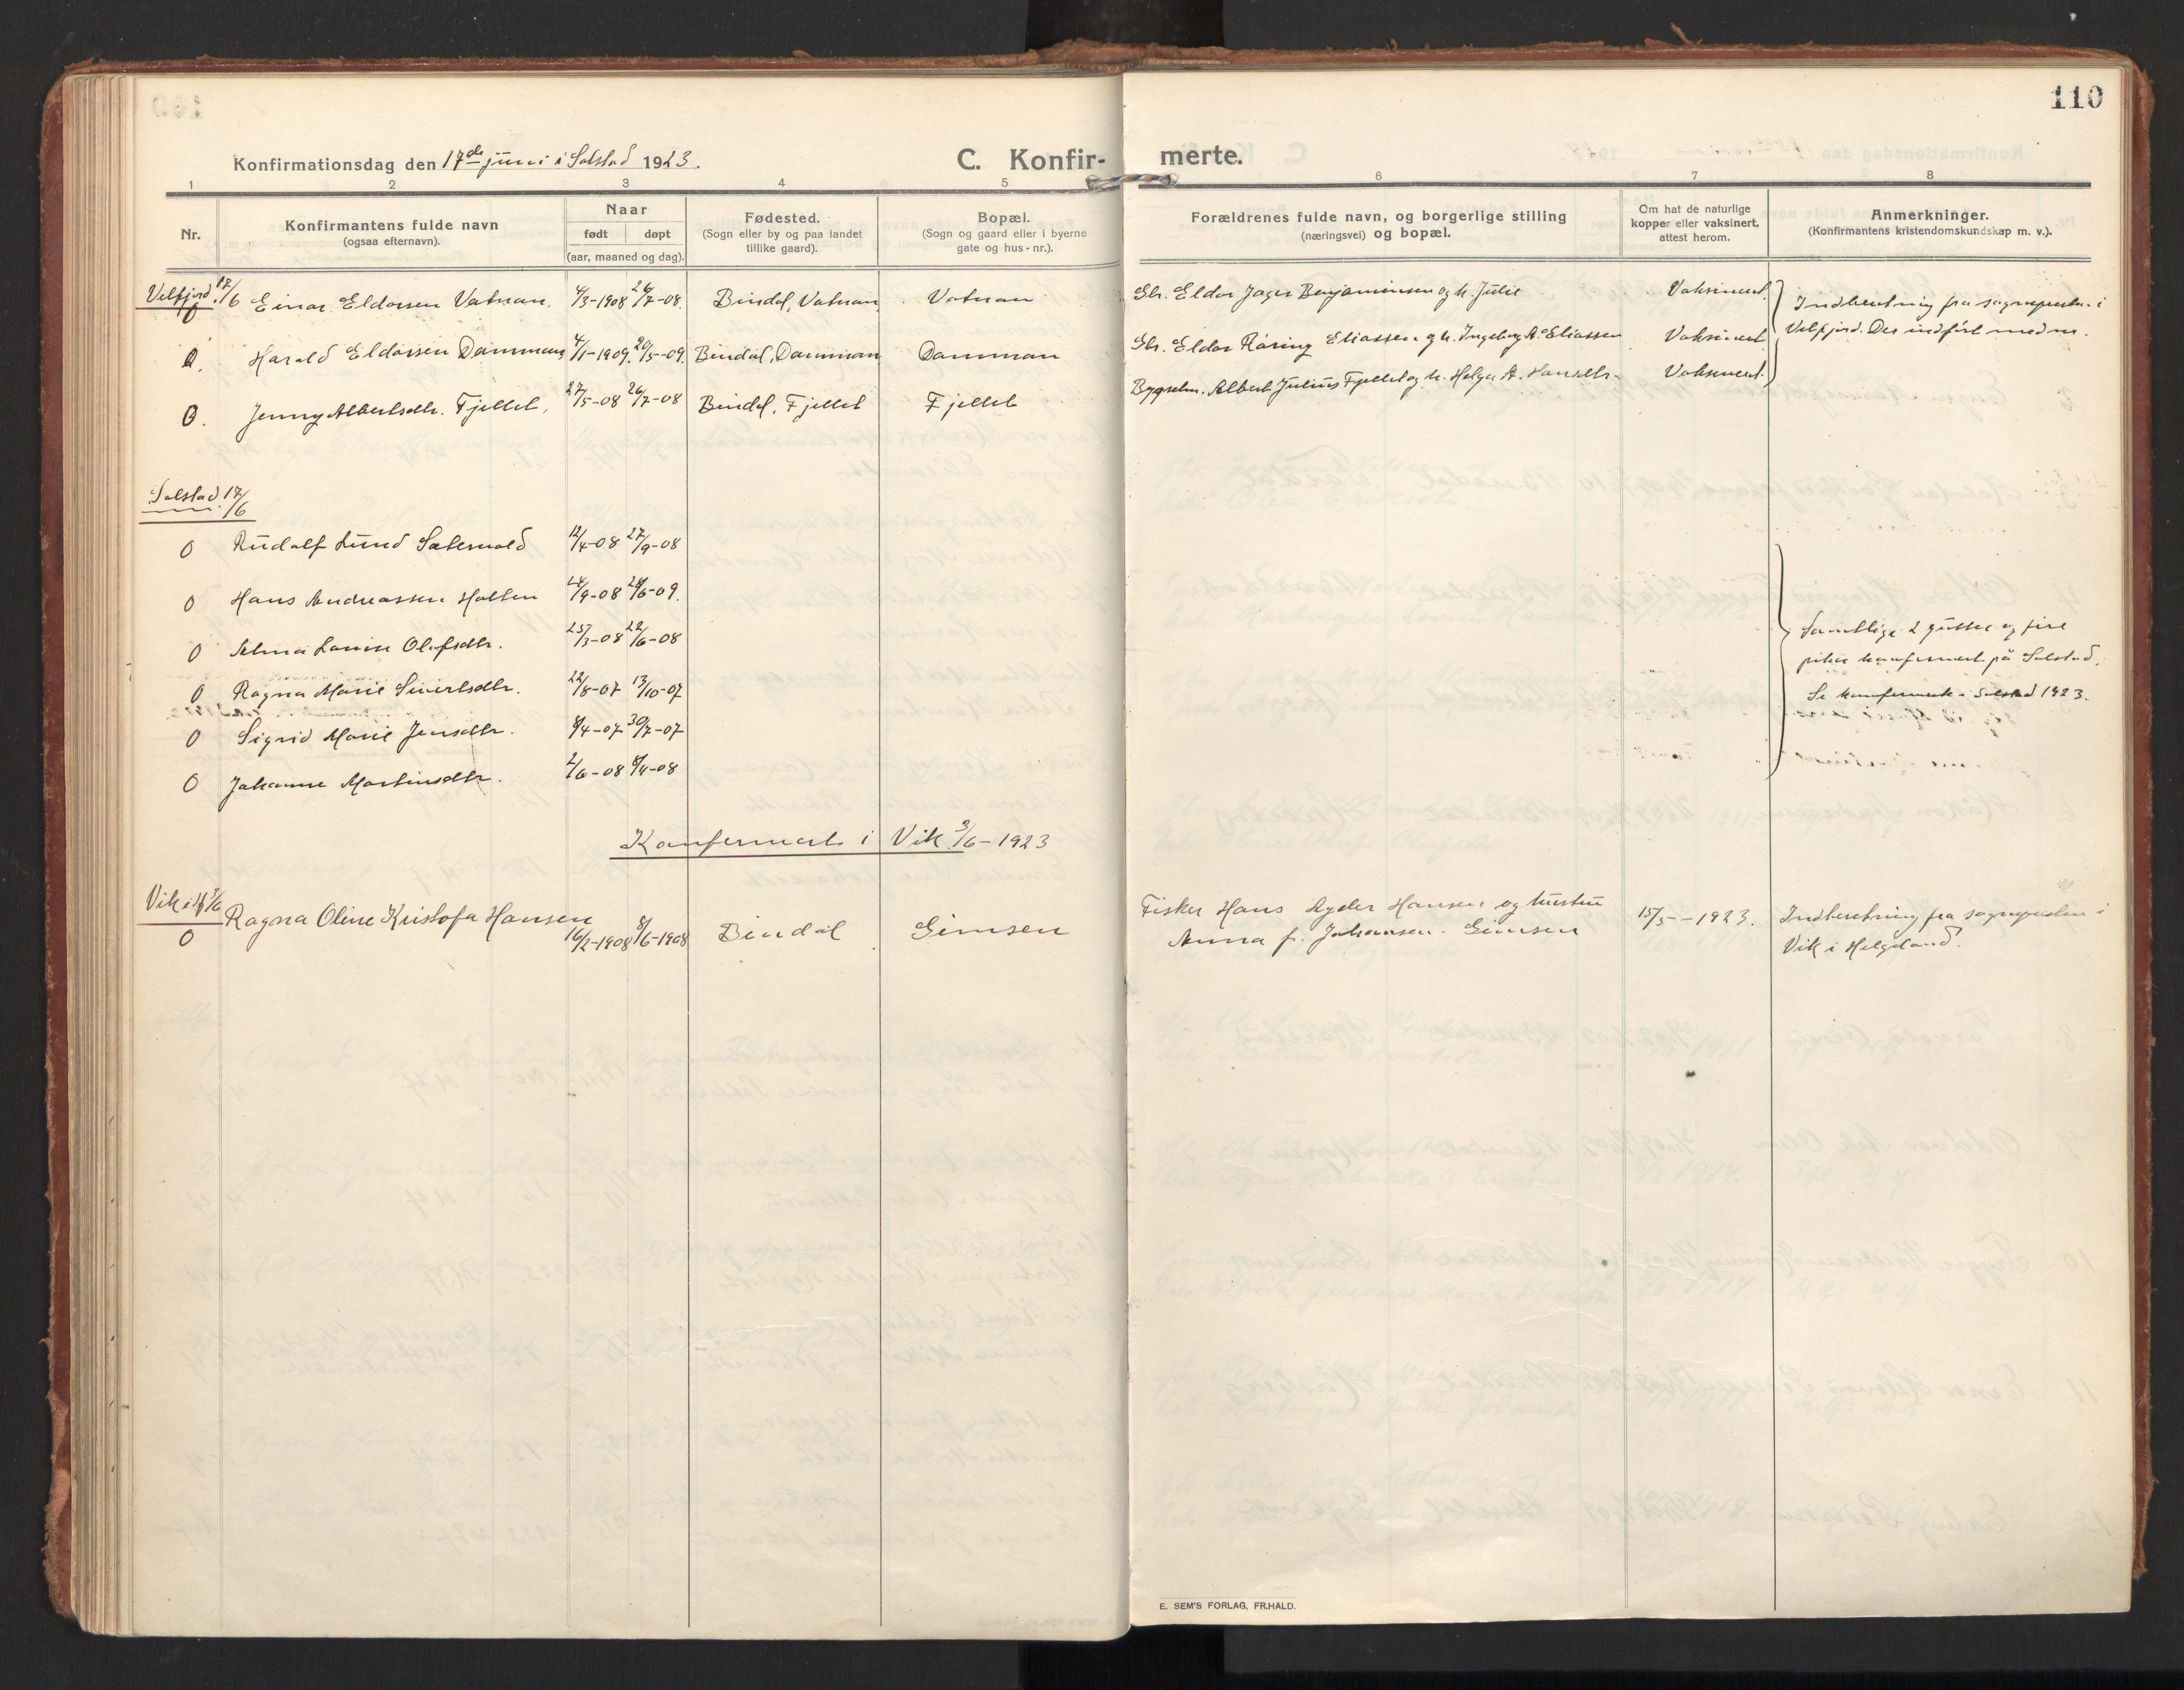 110
Konfirmationsdag den 17de juni i Solstad 1923.
C. Konfir-
merte.
1 2 3 4 5 6 7 8
Nr.
Konfirmantens fulde navn
(ogsaa efternavn).
Naar
født døpt
(aar, maaned og dag).
Fødested.
(Sogn eller by og paa landet
tillike gaard).
Bopæl.
(Sogn og gaard eller i byerne
gate og hus-nr.).
Forældrenes fulde navn, og borgerlige stilling
(næringsvei) og bopæl.
Om hat de naturlige
kopper eller vaksinert,
attest herom.
Anmerkninger.
(Konfirmantens kristendomskundskap m. v.).
Velfjord 17/6 Einar Eldorsen Vatnan, 4/3-1908 26/7-08. Bindal, Vatnan, Vatnan Gbr. Eldor Jager Benjaminsen og h. Julie Vaksinert.
0. Harald Eldorsen Damman 4/1-1909. 20/5-09. Bindal, Damman Damman Gbr. Eldor Röring Eliassen og h. Ingeborg A. Eliassen Vaksinert
0. Jenny Albertsdtr. Fjellet, 27/5-08 26/7-08 Bindal, Fjellet Fjellet Bygselm. Albert Julius Fjellet og h. Helga A. Hansdtr. Vaksinert.
Indberetning fra sognepresten i
Velfjord. Der indført med nr.
Solstad 17/6
0 Rudolf Lund Sætervold 12/4-08 27/9-08
0 Hans Andreassen Holten 24/9-08 28/6-09.
0 Alma Lovise Olafsdtr. 25/3-08 22/6-08
0 Ragna Marie Sivertsdtr. 22/8-07 13/10-07
0 Sigrid Marie Jensdtr. 8/4-07 30/7-07
0 Johanne Martinsdtr. 2/6-08 8/4-08
Samtlige 2 gutter og fire
piker konfirmert på Solstad.
Se konfirmerte i Solstad 1923.
Konfirmert i Vik 3/6-1923
Vik i H 3/6
0 Ragna Oline Kristofa Hansen 16/2-1908 8/6-1908 Bindal Gimsen
Fisker Hans Ayder Hansen og hustru
Anna f. Johansen. Gimsen
15/5--1923.
Indberetning fra sognepresten i
Vik i Helgeland.
E. SEM'S FORLAG, FR.HALD.